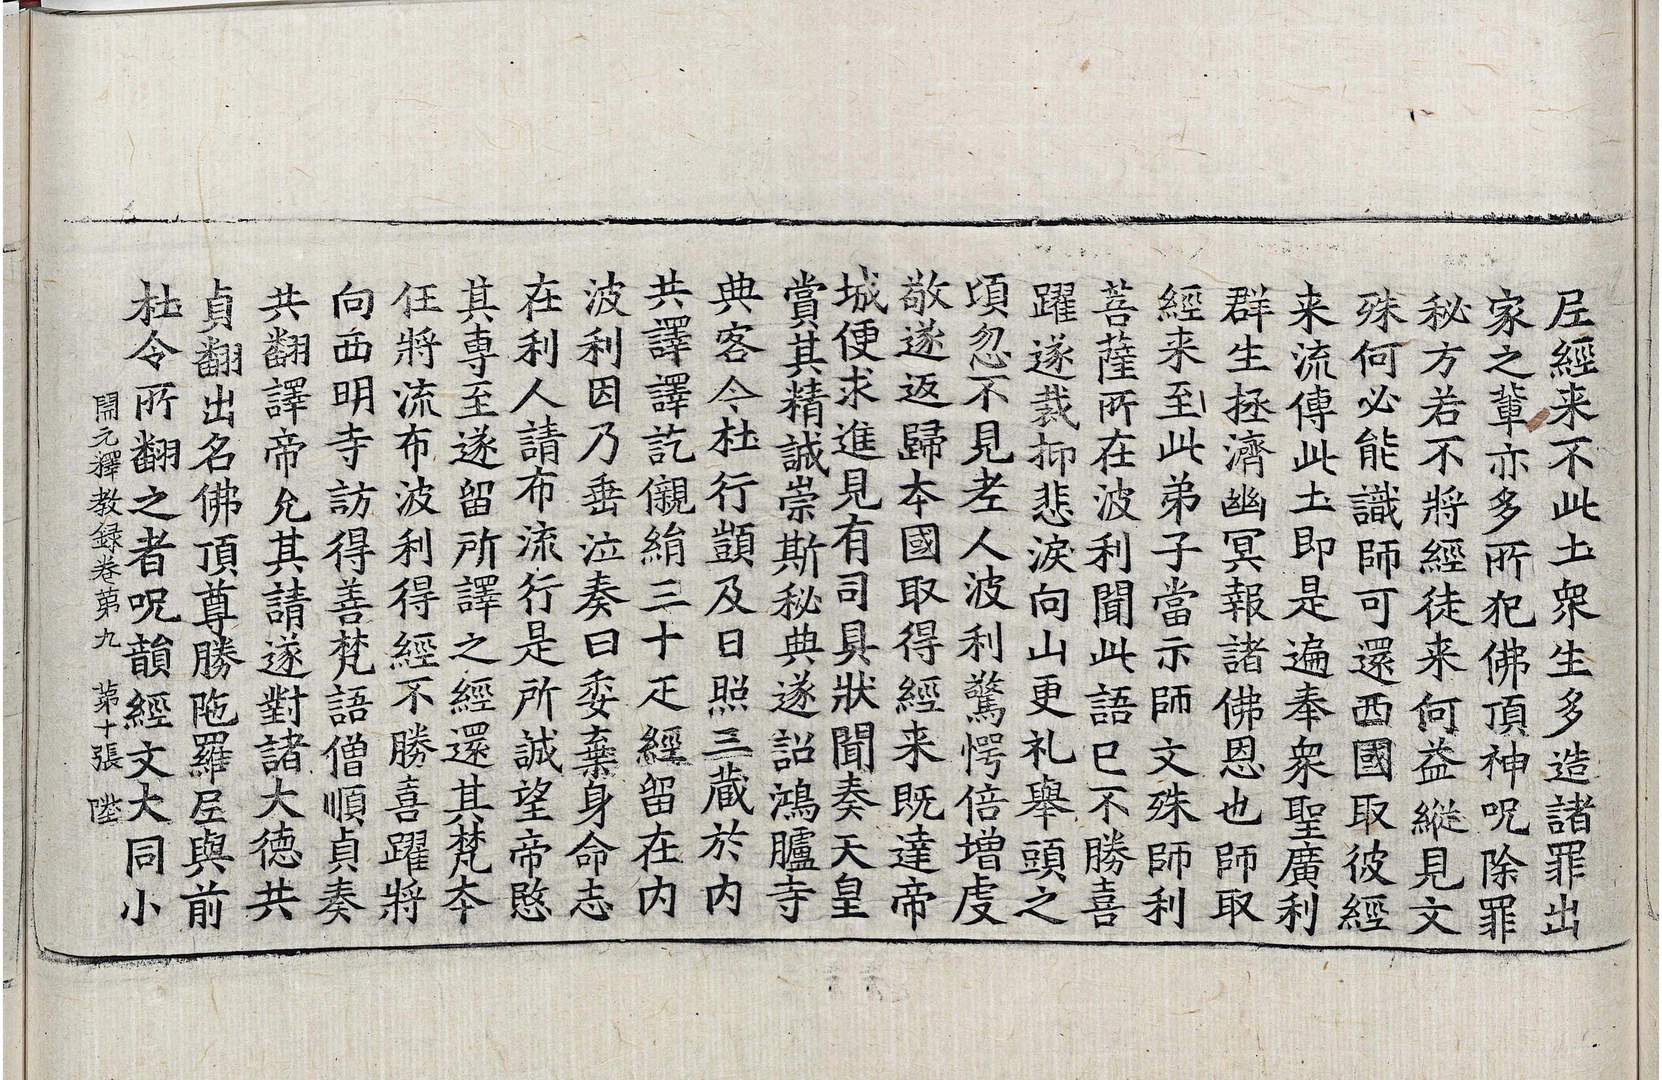 尼經来不此土衆生多造諸罪出
家之輩亦多所犯佛頂神呪除罪
秘方若不將經徒来何益縱見文
殊何必能識師可還西國取彼經
来流傳此土即是遍奉衆聖廣利
群生拯濟幽冥報諸佛恩也師取
經来至此弟子當示師文殊師利
菩薩所在波利聞此語已不勝喜
躍遂裁抑悲淚向山更礼舉頭之
頃忽不見老人波利驚愕倍增虔
敬遂返歸本國取得經来既達帝
城便求進見有司具狀聞奏天皇
賞其精誠崇斯秘典遂詔鴻臚寺
典客令杜行顗及日照三藏於内
共譯譯訖儭絹三十疋經留在内
波利因乃垂泣奏曰委棄身命志
在利人請布流行是所誠望帝愍
其專至遂留所譯之經還其梵本
任將流布波利得經不勝喜躍將
向西明寺訪得善梵語僧順貞奏
共翻譯帝允其請遂對諸大德共
貞翻出名佛頂尊勝陁羅尼與前
杜令所翻之者呪韻經文大同小
開元釋教録卷第九 第十張 陞